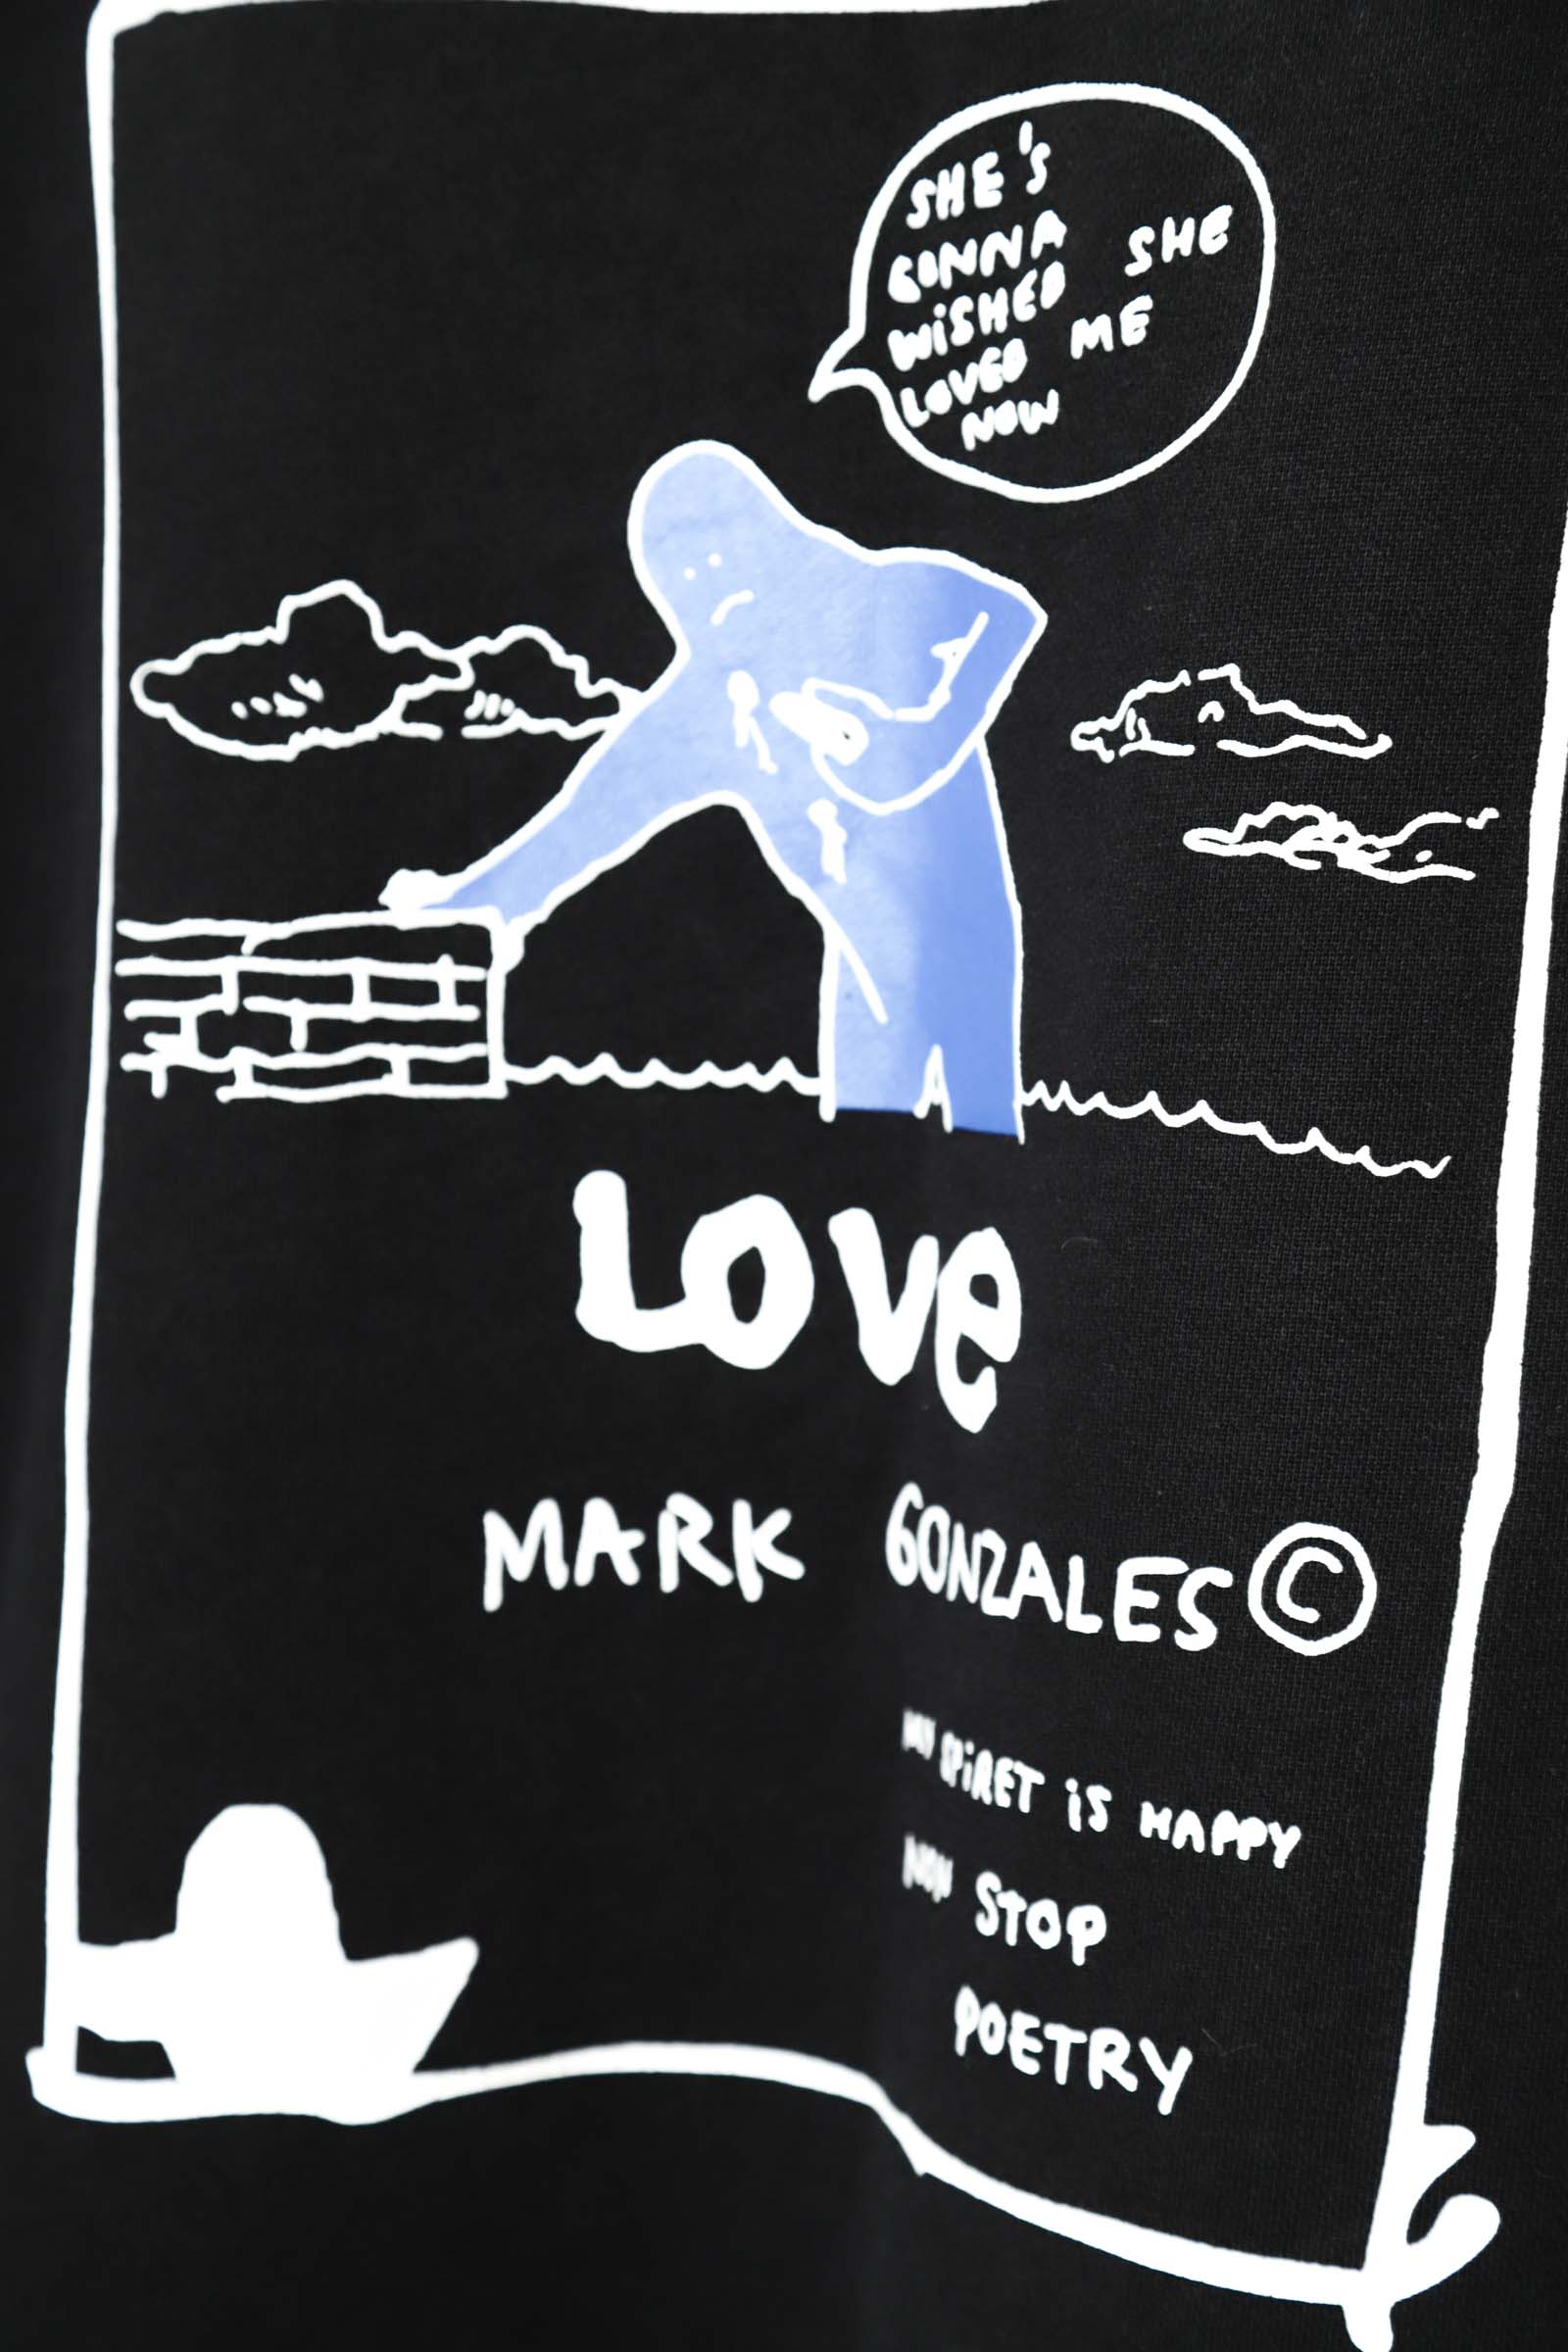 SHE'S
GONNA
WiSHED SHE
LOVED ME
NOW
Love
MARK GONZALES ©
MY SPiRET iS HAPPY
NON STOP
POETRY